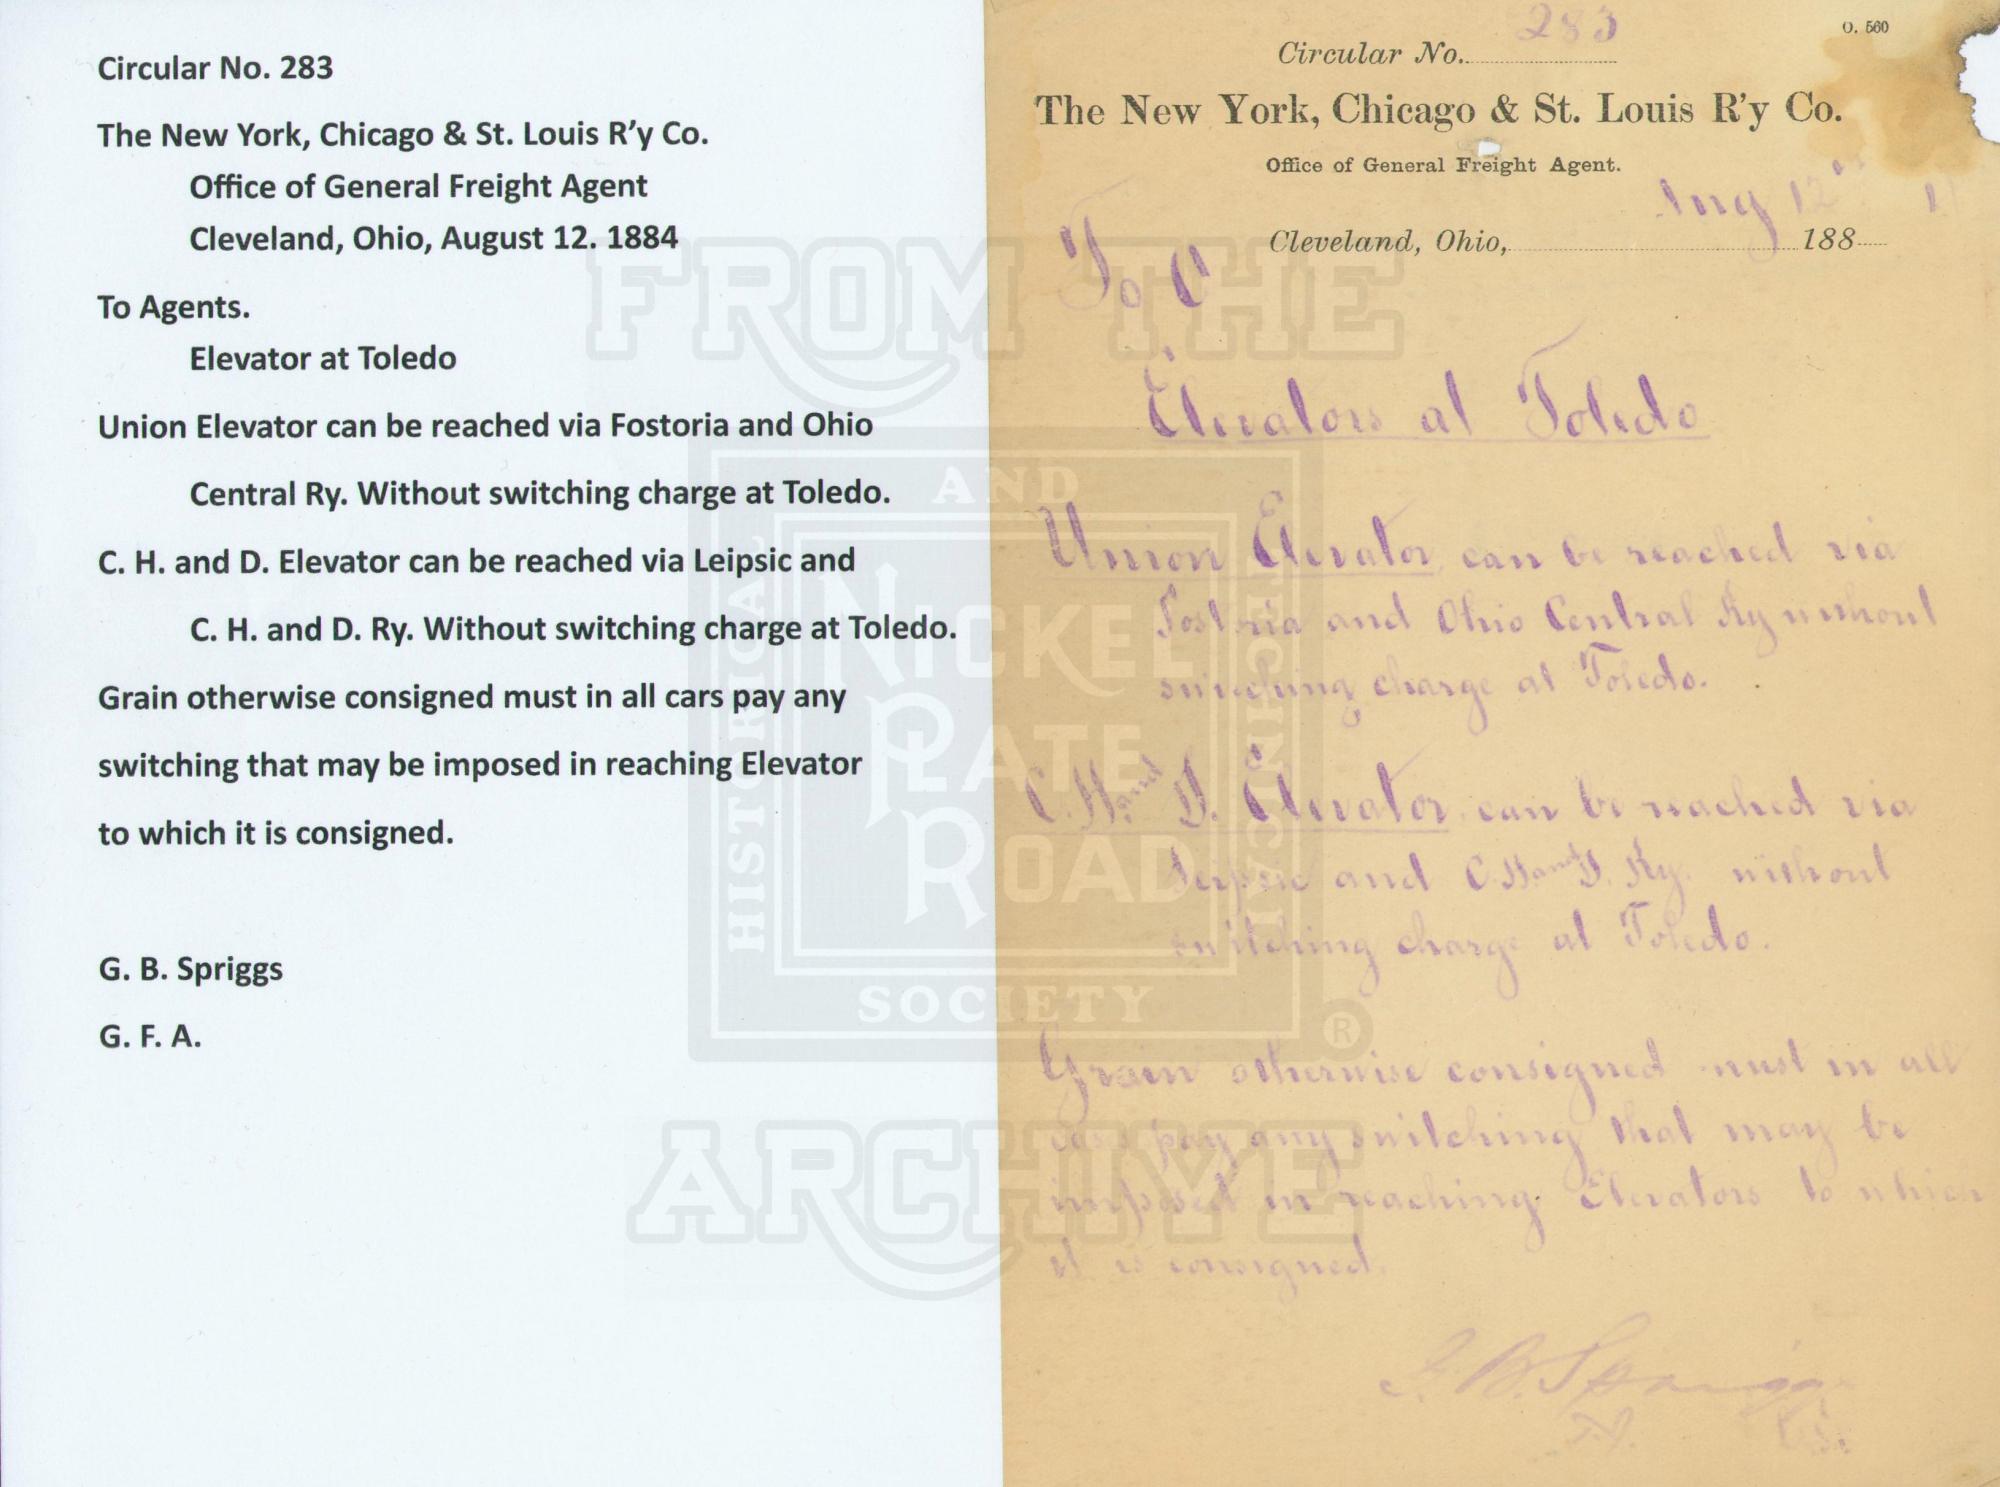 Circular No. 283
The New York, Chicago & St. Louis R'y Co.
Office of General Freight Agent
Cleveland, Ohio, August 12. 1884
To Agents.
Elevator at Toledo
Union Elevator can be reached via Fostoria and Ohio
Central Ry. Without switching charge at Toledo.
C. H. and D. Elevator can be reached via Leipsic and
C. H. and D. Ry. Without switching charge at Toledo.
Grain otherwise consigned must in all cars pay any
switching that may be imposed in reaching Elevator
to which it is consigned.
G. B. Spriggs
G. F. A.
O. 560
Circular No. 283
The New York, Chicago & St. Louis R'y Co.
Office of General Freight Agent.
Aug 12
Cleveland, Ohio, 188
To
Elevators at Toledo
Union Elevator can be reached via
Fostoria and Ohio Central Ry without
switching charge at Toledo.
C. H. and D. Elevator can be reached via
Leipsic and C. H. and D. Ry. without
switching charge at Toledo.
Grain otherwise consigned must in all
cars pay any switching that may be
imposed in reaching Elevators to which
it is consigned.
G. B. Spriggs
FROM THE
HISTORICAL AND TECHNICAL SOCIETY
NICKEL
PLATE
ROAD
®
ARCHIVE